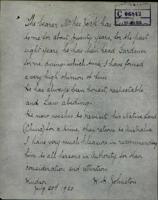 06142
The bearer Mr Kee Sack has been
to me for about twenty years, for the last
eight years he has been head Gardener
for me during which time I have formed
a very high opinion of him.
He has always been honest, respectable
and law abiding.
He now wishes to revisit his native land
(China) for a time, then return to Australia.
I have very much pleasure in recommending
him to all persons in Authority for their
consideration and attention
Johnston
July 20th 1920